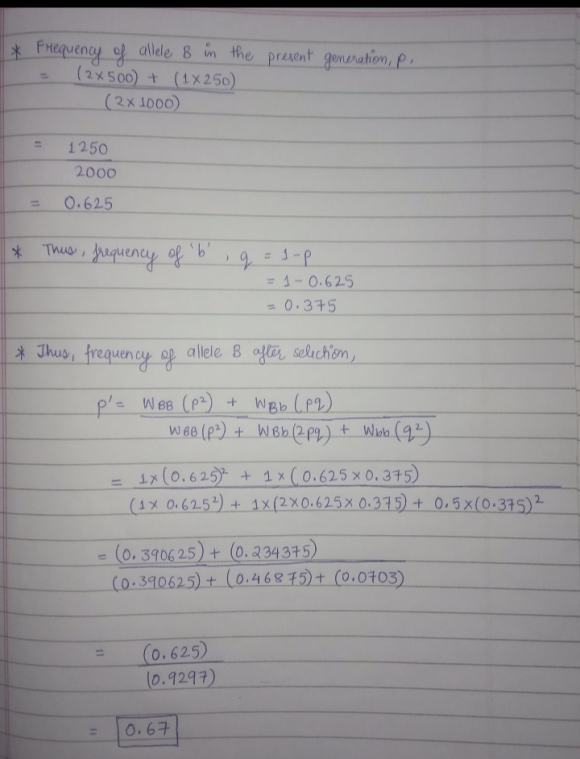 * Frequency of allele B in the present generation, p,
= (2×500) + (1×250)
(2×1000)
= 1250
2000
= 0.625
* Thus, frequency of 'b', q = 1-p
= 1-0.625
= 0.375
* Thus, frequency of allele B after selection,
p' = WBB (p²) + WBb (pq)
WBB (p²) + WBb (2pq) + Wbb (q²)
= 1×(0.625)² + 1×(0.625×0.375)
(1× 0.625²) + 1×(2×0.625×0.375) + 0.5×(0.375)²
= (0.390625) + (0.234375)
(0.390625) + (0.46875) + (0.0703)
= (0.625)
(0.9297)
= 0.67